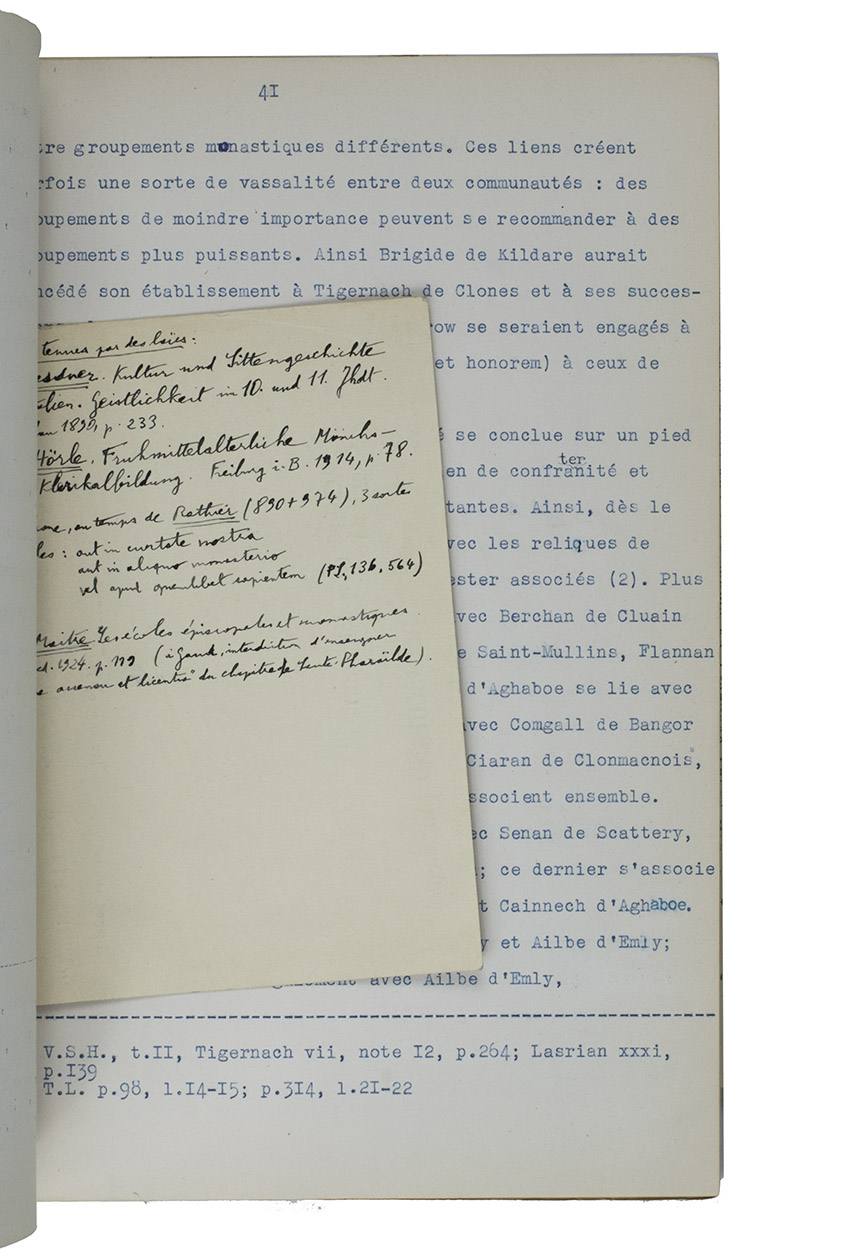 41
tre groupements monastiques différents. Ces liens créent
rfois une sorte de vassalité entre deux communautés : des
oupements de moindre importance peuvent se recommander à des
oupements plus puissants. Ainsi Brigide de Kildare aurait
ncédé son établissement à Tigernach de Clones et à ses succes-
row se seraient engagés à
et honorem) à ceux de
é se conclue sur un pied
ter
en de confranité et
tantes. Ainsi, dès le
vec les reliques de
ester associés (2). Plus
vec Berchan de Cluain
e Saint-Mullins, Flannan
d'Aghaboe se lie avec
avec Comgall de Bangor
Ciaran de Clonmacnois,
ssocient ensemble.
ec Senan de Scattery,
; ce dernier s'associe
t Cainnech d'Aghaboe.
y et Ailbe d'Emly;
galement avec Ailbe d'Emly,
V.S.H., t.II, Tigernach vii, note I2, p.264; Lasrian xxxi,
p.I39
T.L. p.98, l.I4-I5; p.3I4, l.2I-22
tenues par des laïcs :
essdner. Kultur und Sittengeschichte
alien. Geistlichkeit im 10. und 11. Jhdt.
1890, p. 233.
Hörle. Frühmittelalterliche Mönchs-
Klerikalbildung. Freiburg i. B. 1914, p. 78.
au temps de Rathier (890+974), 3 sortes
les : aut in civitate nostra
aut in aliquo monasterio
vel apud quemlibet sapientem (PL, 136, 564)
Maitre Les écoles épiscopales et monastiques
ed. 1924. p. 119 (à Gand, interdiction d'enseigner
et licentia" du chapitre de Sainte Pharaïlde).